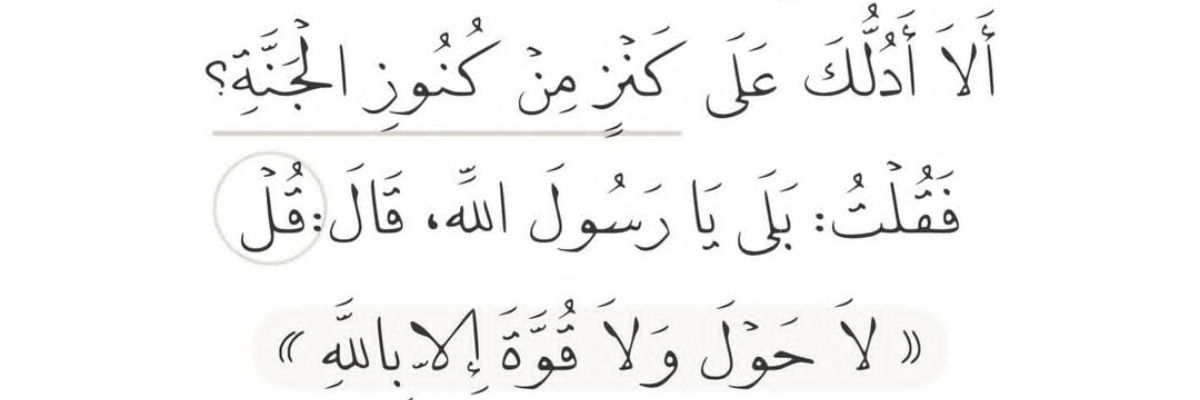 أَلاَ أَدُلُّكَ عَلَى كَنْزٍ مِنْ كُنُوزِ الْجَنَّةِ؟
فَقُلْتُ: بَلَى يَا رَسُولَ اللَّهِ، قَالَ: قُلْ
« لاَ حَوْلَ وَلاَ قُوَّةَ إِلاَّ بِاللَّهِ »